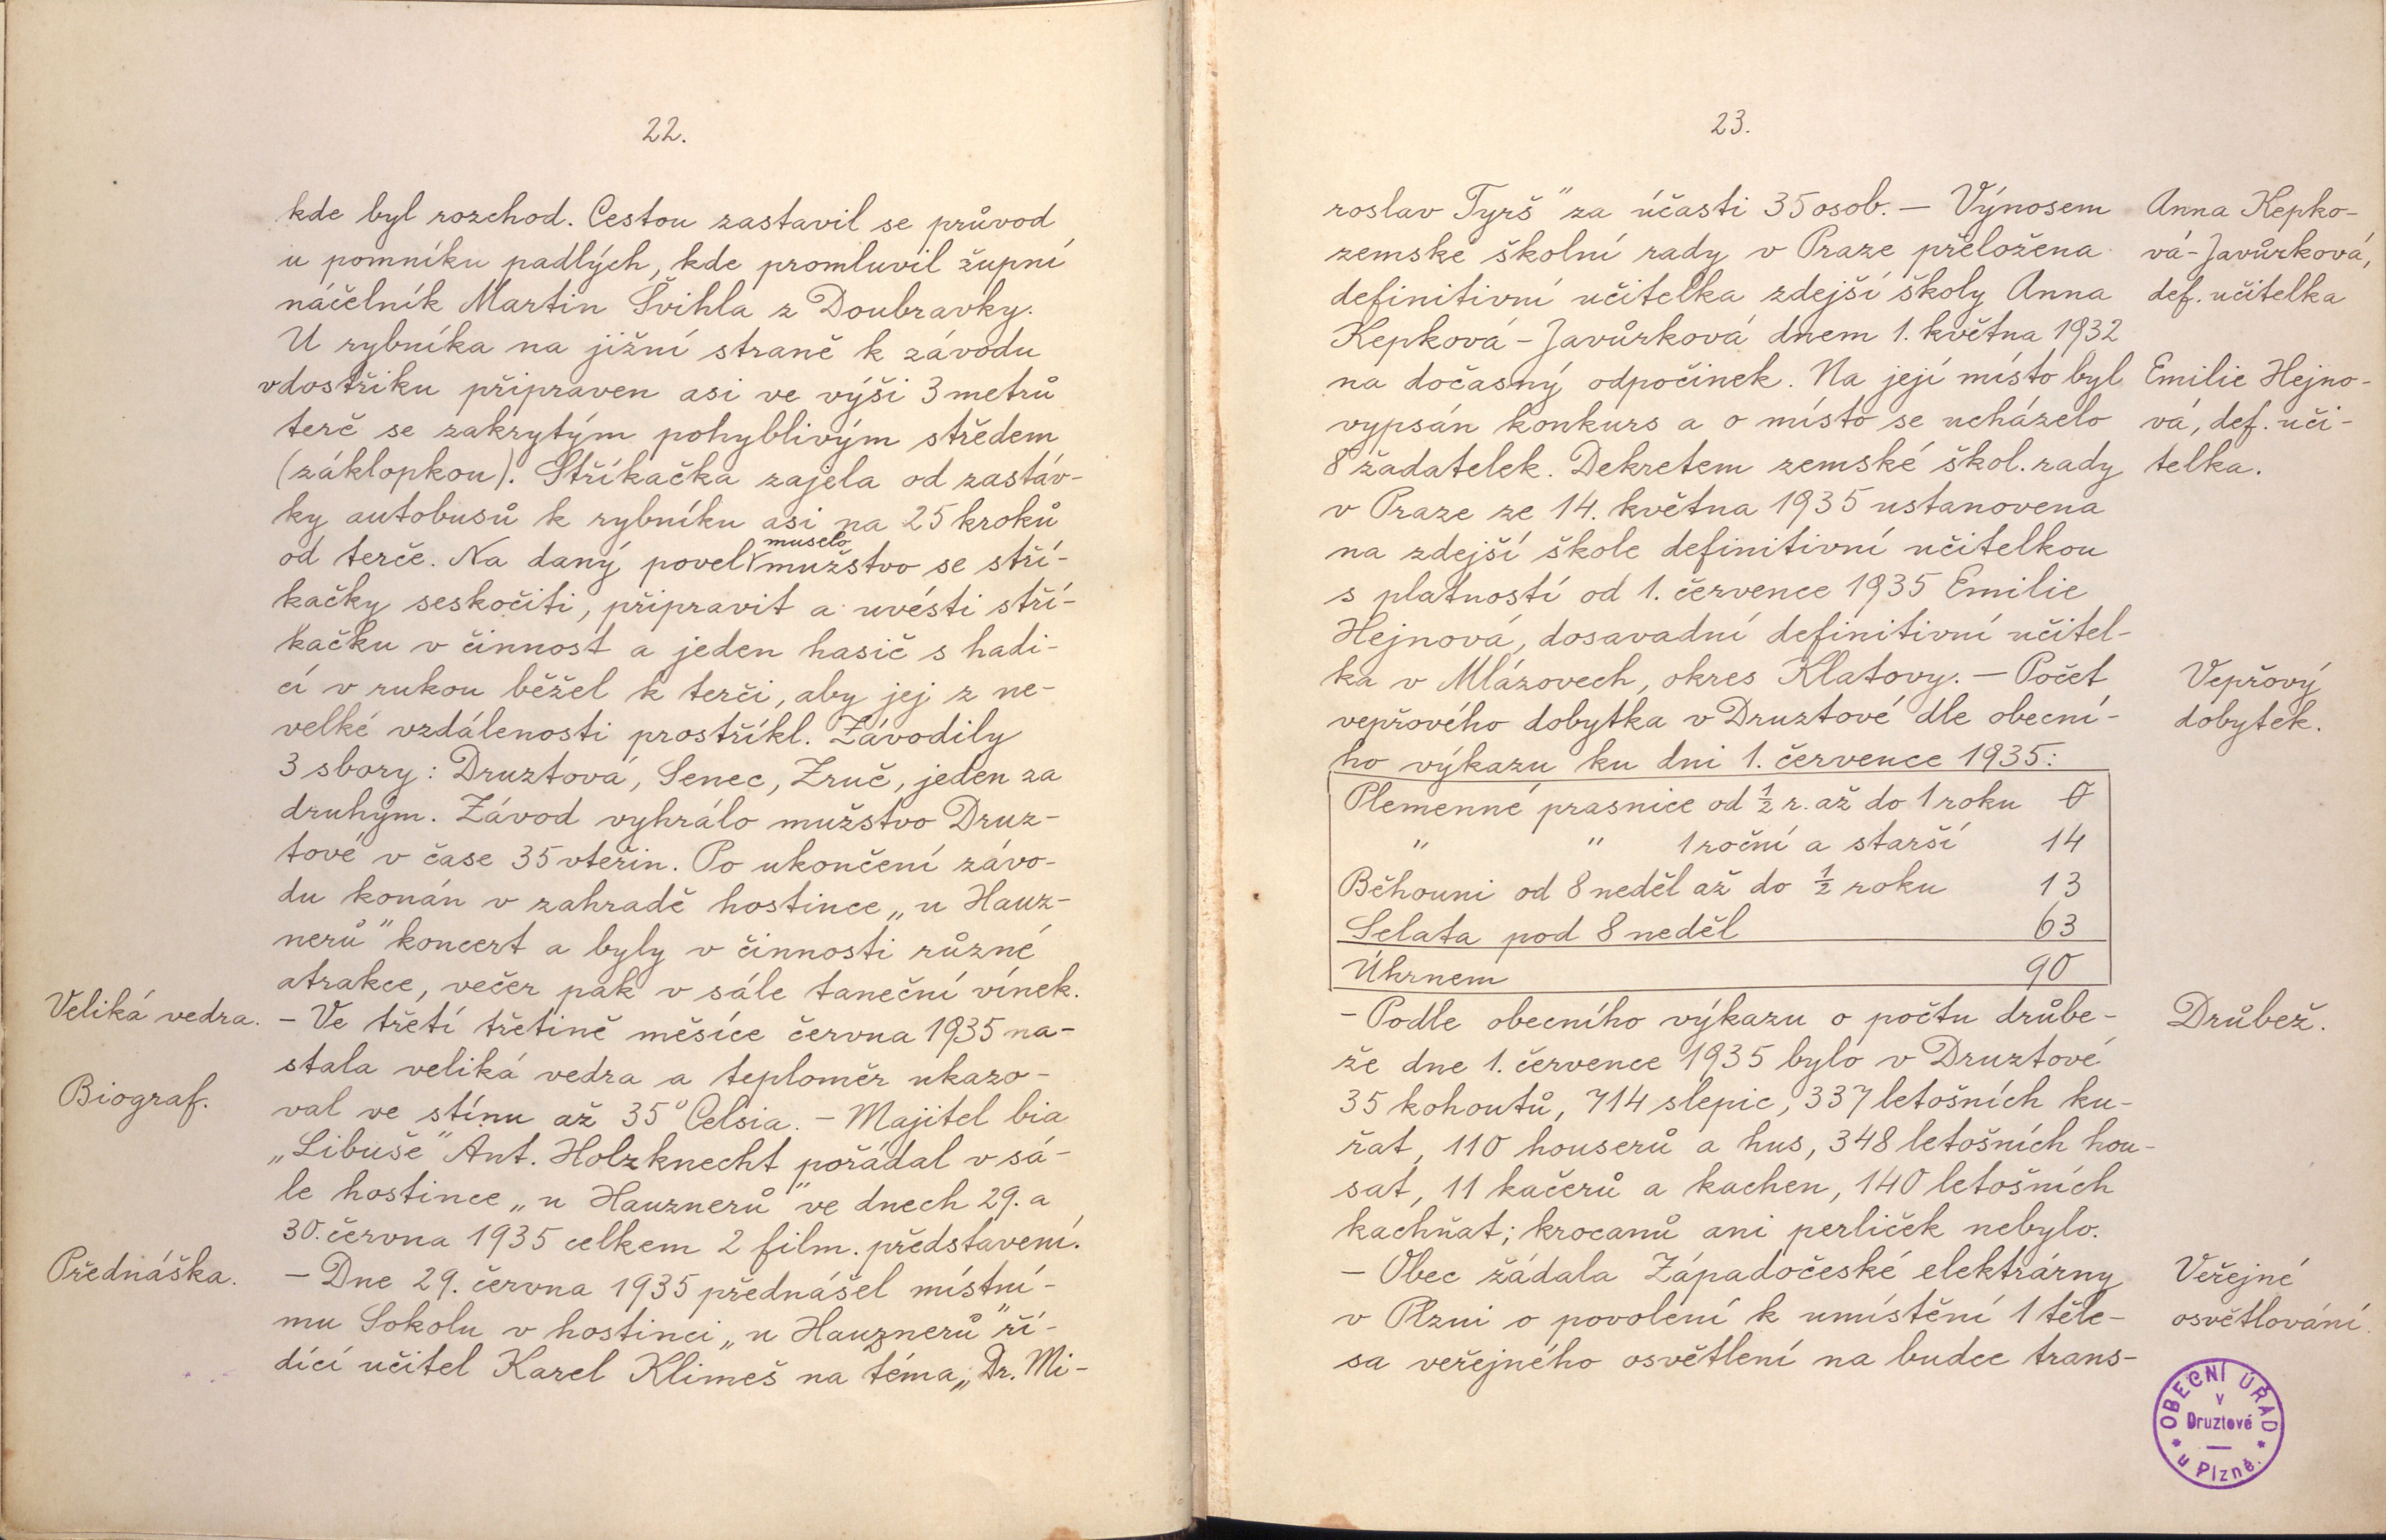 22.
kde byl rozchod. Cestou zastavil se průvod
u pomníku padlých, kde promluvil župní
náčelník Martin Švihla z Doubravky.
U rybníka na jižní straně k závodu
v dostřiku připraven asi ve výši 3 metrů
terč se zakrytým pohyblivým středem
(záklopkou). Stříkačka zajela od zastáv-
ky autobusů k rybníku asi na 25 kroků
muselo
od terče. Na daný povel mužstvo se stří-
kačky seskočiti, připravit a uvésti stří-
kačku v činnost a jeden hasič s hadi-
cí v rukou běžel k terči, aby jej z ne-
velké vzdálenosti prostříkl. Závodily
3 sbory: Druztová, Senec, Zruč, jeden za
druhým. Závod vyhrálo mužstvo Druz-
tové v čase 35 vteřin. Po ukončení závo-
du konán v zahradě hostince „u Hauz-
nerů" koncert a byly v činnosti různé
atrakce, večer pak v sále taneční vínek.
Veliká vedra. – Ve třetí třetině měsíce června 1935 na-
stala veliká vedra a teploměr ukazo-
Biograf. val ve stínu až 35° Celsia. – Majitel bia
„Libuše" Ant. Holzknecht pořádal v sá-
le hostince „u Hauznerů" ve dnech 29. a
30. června 1935 celkem 2 film. představení.
Přednáška. – Dne 29. června 1935 přednášel místní-
mu Sokolu v hostinci „u Hauznerů" ří-
dící učitel Karel Klimeš na téma „Dr. Mi-
23.
roslav Tyrš" za účasti 35 osob. – Výnosem Anna Kepko-
zemské školní rady v Praze přeložena vá-Javůrková,
definitivní učitelka zdejší školy Anna def. učitelka
Kepková-Javůrková dnem 1. května 1932
na dočasný odpočinek. Na její místo byl Emilie Hejno-
vypsán konkurs a o místo se ucházelo vá, def. uči-
8 žadatelek. Dekretem zemské škol. rady telka.
v Praze ze 14. května 1935 ustanovena
na zdejší škole definitivní učitelkou
s platností od 1. července 1935 Emilie
Hejnová, dosavadní definitivní učitel-
ka v Mlázovech, okres Klatovy. – Počet Vepřový
vepřového dobytka v Druztové dle obecní- dobytek.
ho výkazu ku dni 1. července 1935:
Plemenné prasnice od ½ r. až do 1 roku 0
" " 1 roční a starší 14
Běhouni od 8 neděl až do ½ roku 13
Selata pod 8 neděl 63
Úhrnem 90
– Podle obecního výkazu o počtu drůbe- Drůbež.
že dne 1. července 1935 bylo v Druztové
35 kohoutů, 714 slepic, 337 letošních ku-
řat, 110 houserů a hus, 348 letošních hou-
sat, 11 kačerů a kachen, 140 letošních
kachňat; krocanů ani perliček nebylo.
– Obec žádala Západočeské elektrárny Veřejné
v Plzni o povolení k umístění 1 těle- osvětlování.
sa veřejného osvětlení na budce trans-
OBECNÍ ÚŘAD
v
Druztové
u Plzně.